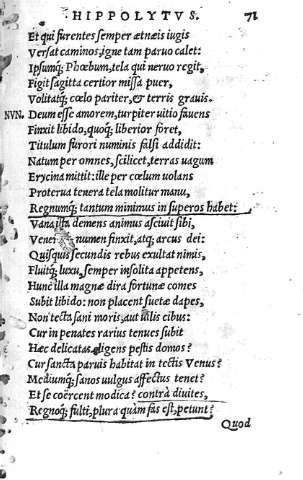 HIPPOLYTVS. 71
Et qui furentes semper ætnæis iugis
Versat caminos, igne tam paruo calet:
Ipsumq; Phœbum, tela qui neruo regit,
Figit sagitta certior missa puer,
Volitatq; cœlo pariter, & terris grauis.
NVN. Deum esse amorem, turpiter uitio fauens
Finxit libido, quoq; liberior foret,
Titulum furori numinis falsi addidit:
Natum per omnes, scilicet, terras uagum
Erycina mittit: ille per cœlum uolans
Proterua tenera tela molitur manu,
Regnumq; tantum minimus in superos habet:
Vana ista demens animus asciuit sibi,
Vene numen finxit, atq; arcus dei:
Quisquis secundis rebus exultat nimis,
Fluitq; luxu, semper insolita appetens,
Hunc illa magnæ dira fortunæ comes
Subit libido: non placent suetæ dapes,
Non tecta sani moris, aut uilis cibus:
Cur in penates rarius tenues subit
Hæc delicatas eligens pestis domos?
Cur sancta paruis habitat in tectis Venus?
Mediumq; sanos uulgus affectus tenet?
Et se coërcent modica? contrà diuites,
Regnoq; fulti, plura quàm fas est, petunt?
Quod